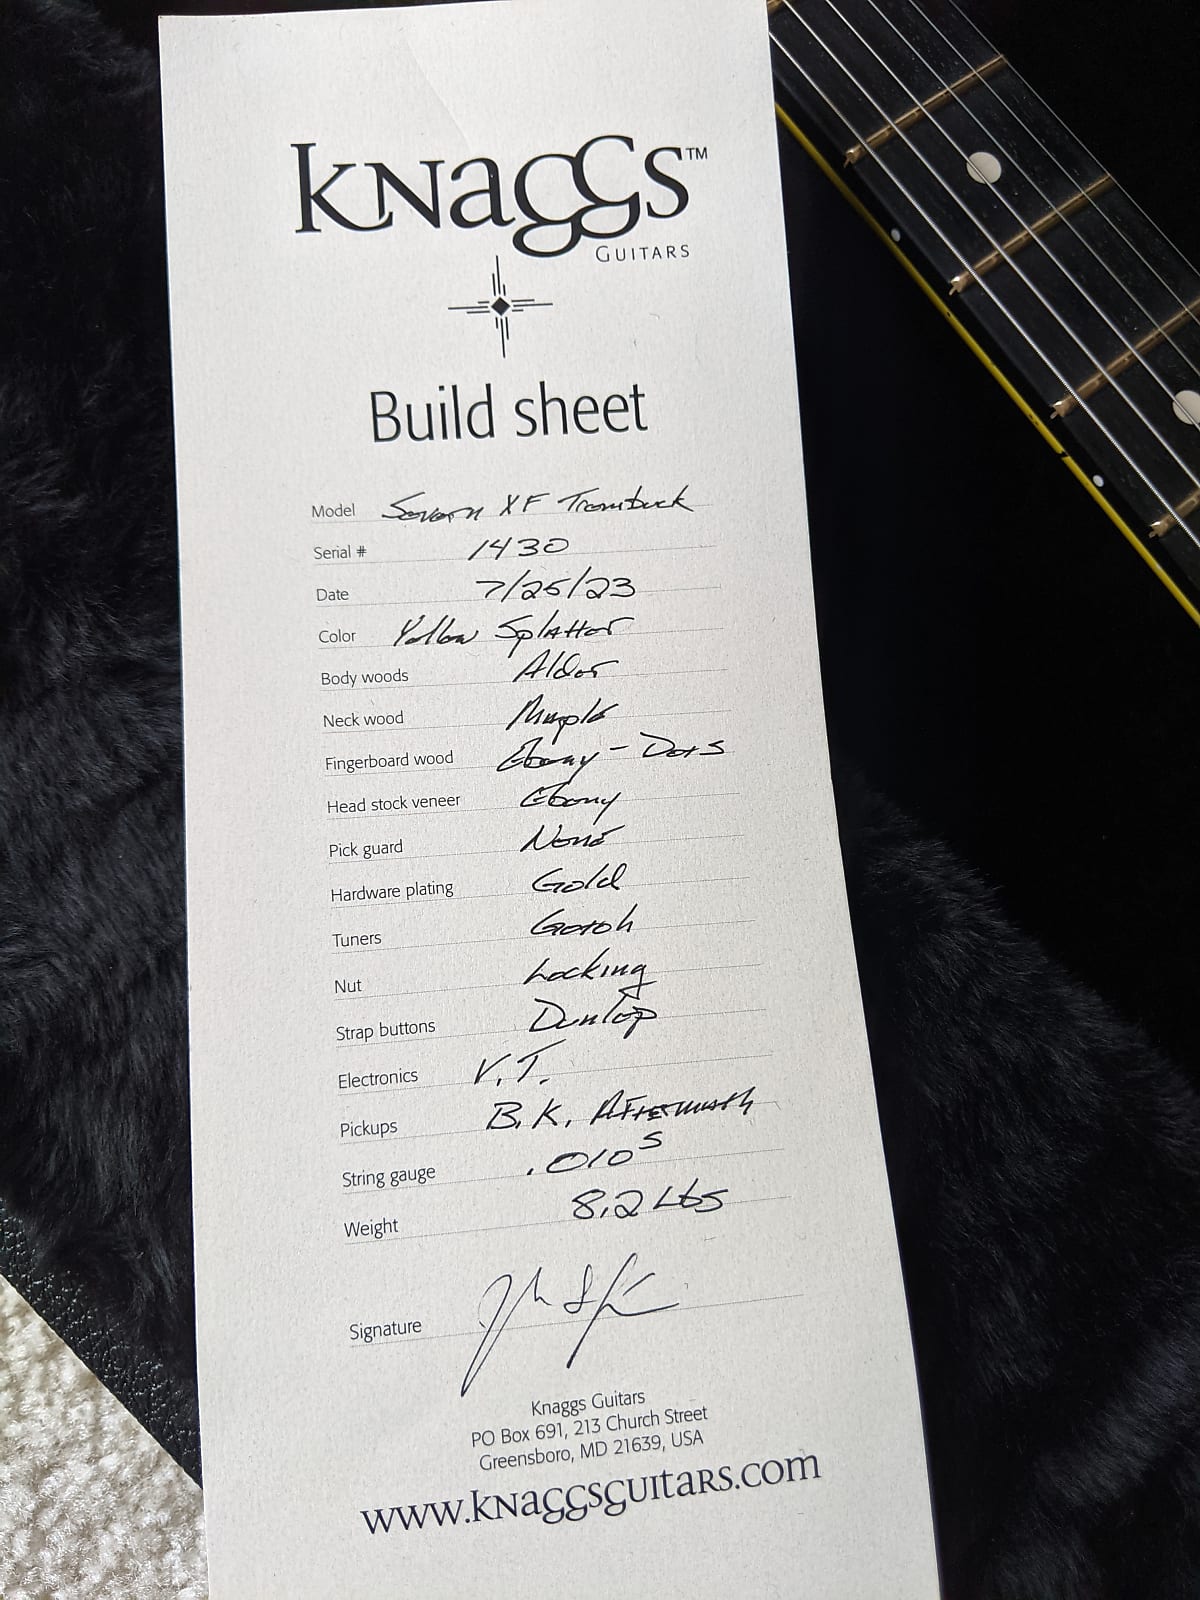 Knaggs™
Guitars
Build sheet
Model Severn XF Trembuck
Serial # 1430
Date 7/25/23
Color Yellow Splatter
Body woods Alder
Neck wood Maple
Fingerboard wood Ebony - Dots
Head stock veneer Ebony
Pick guard None
Hardware plating Gold
Tuners Gotoh
Nut Locking
Strap buttons Dunlop
Electronics V.T.
Pickups B.K. Aftermath
String gauge .010s
Weight 8.2 Lbs
Signature
Knaggs Guitars
PO Box 691, 213 Church Street
Greensboro, MD 21639, USA
www.knaggsguitars.com